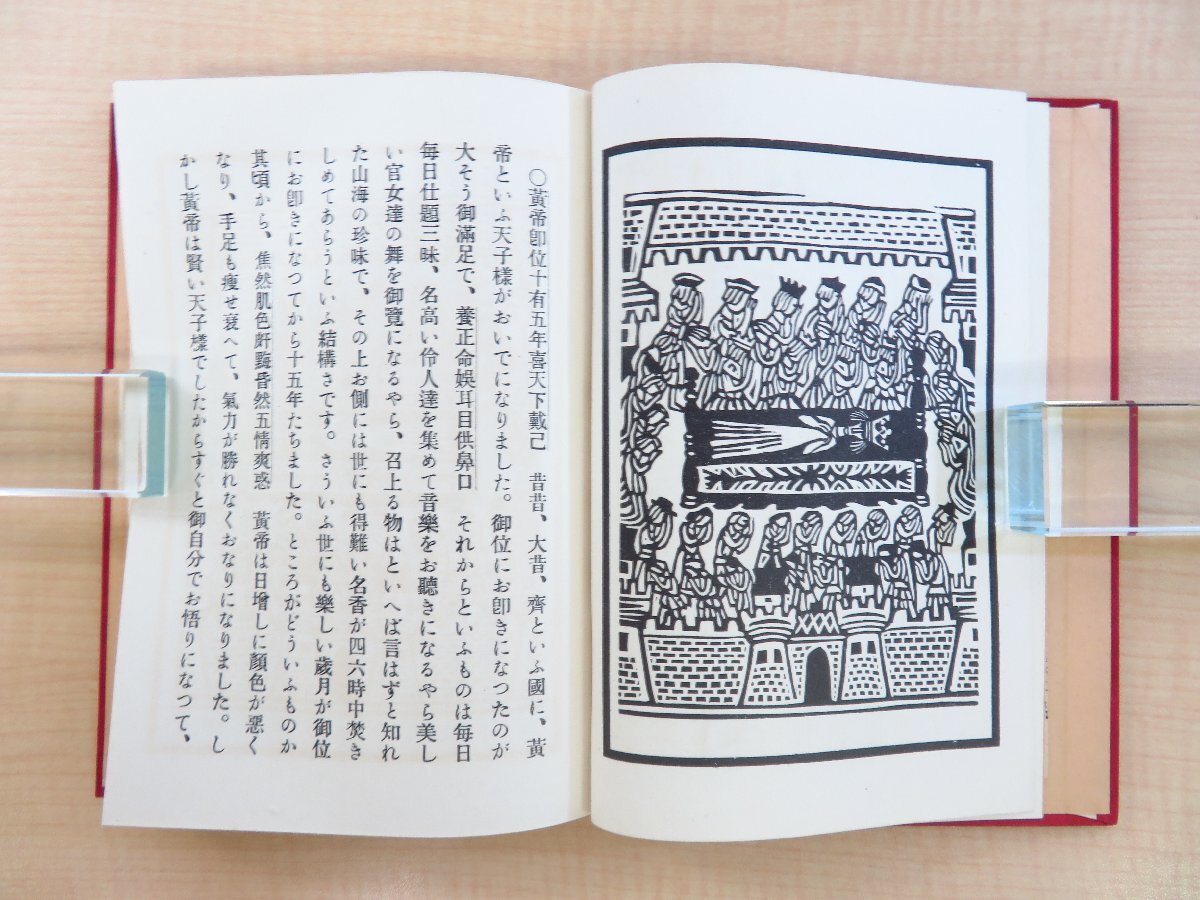 〇黃帝卽位十有五年喜天下戴己　昔昔、大昔、齊といふ國に、黃
帝といふ天子樣がおいでになりました。御位にお卽きになつたのが
大そう御滿足で、養正命娛耳目供鼻口　それからといふものは每日
每日仕題三昧、名高い伶人達を集めて音樂をお聽きになるやら美し
い官女達の舞を御覽になるやら、召上る物はといへば言はずと知れ
た山海の珍味で、その上お側には世にも得難い名香が四六時中焚き
しめてあらうといふ結構さです。さういふ世にも樂しい歲月が御位
にお卽きになつてから十五年たちました。ところがどういふものか
其頃から、焦然肌色皯黣昏然五情爽惑　黃帝は日增しに顏色が悪く
なり、手足も瘦せ衰へて、氣力が勝れなくおなりになりました。し
かし黃帝は賢い天子樣でしたからすぐと御自分でお悟りになつて、